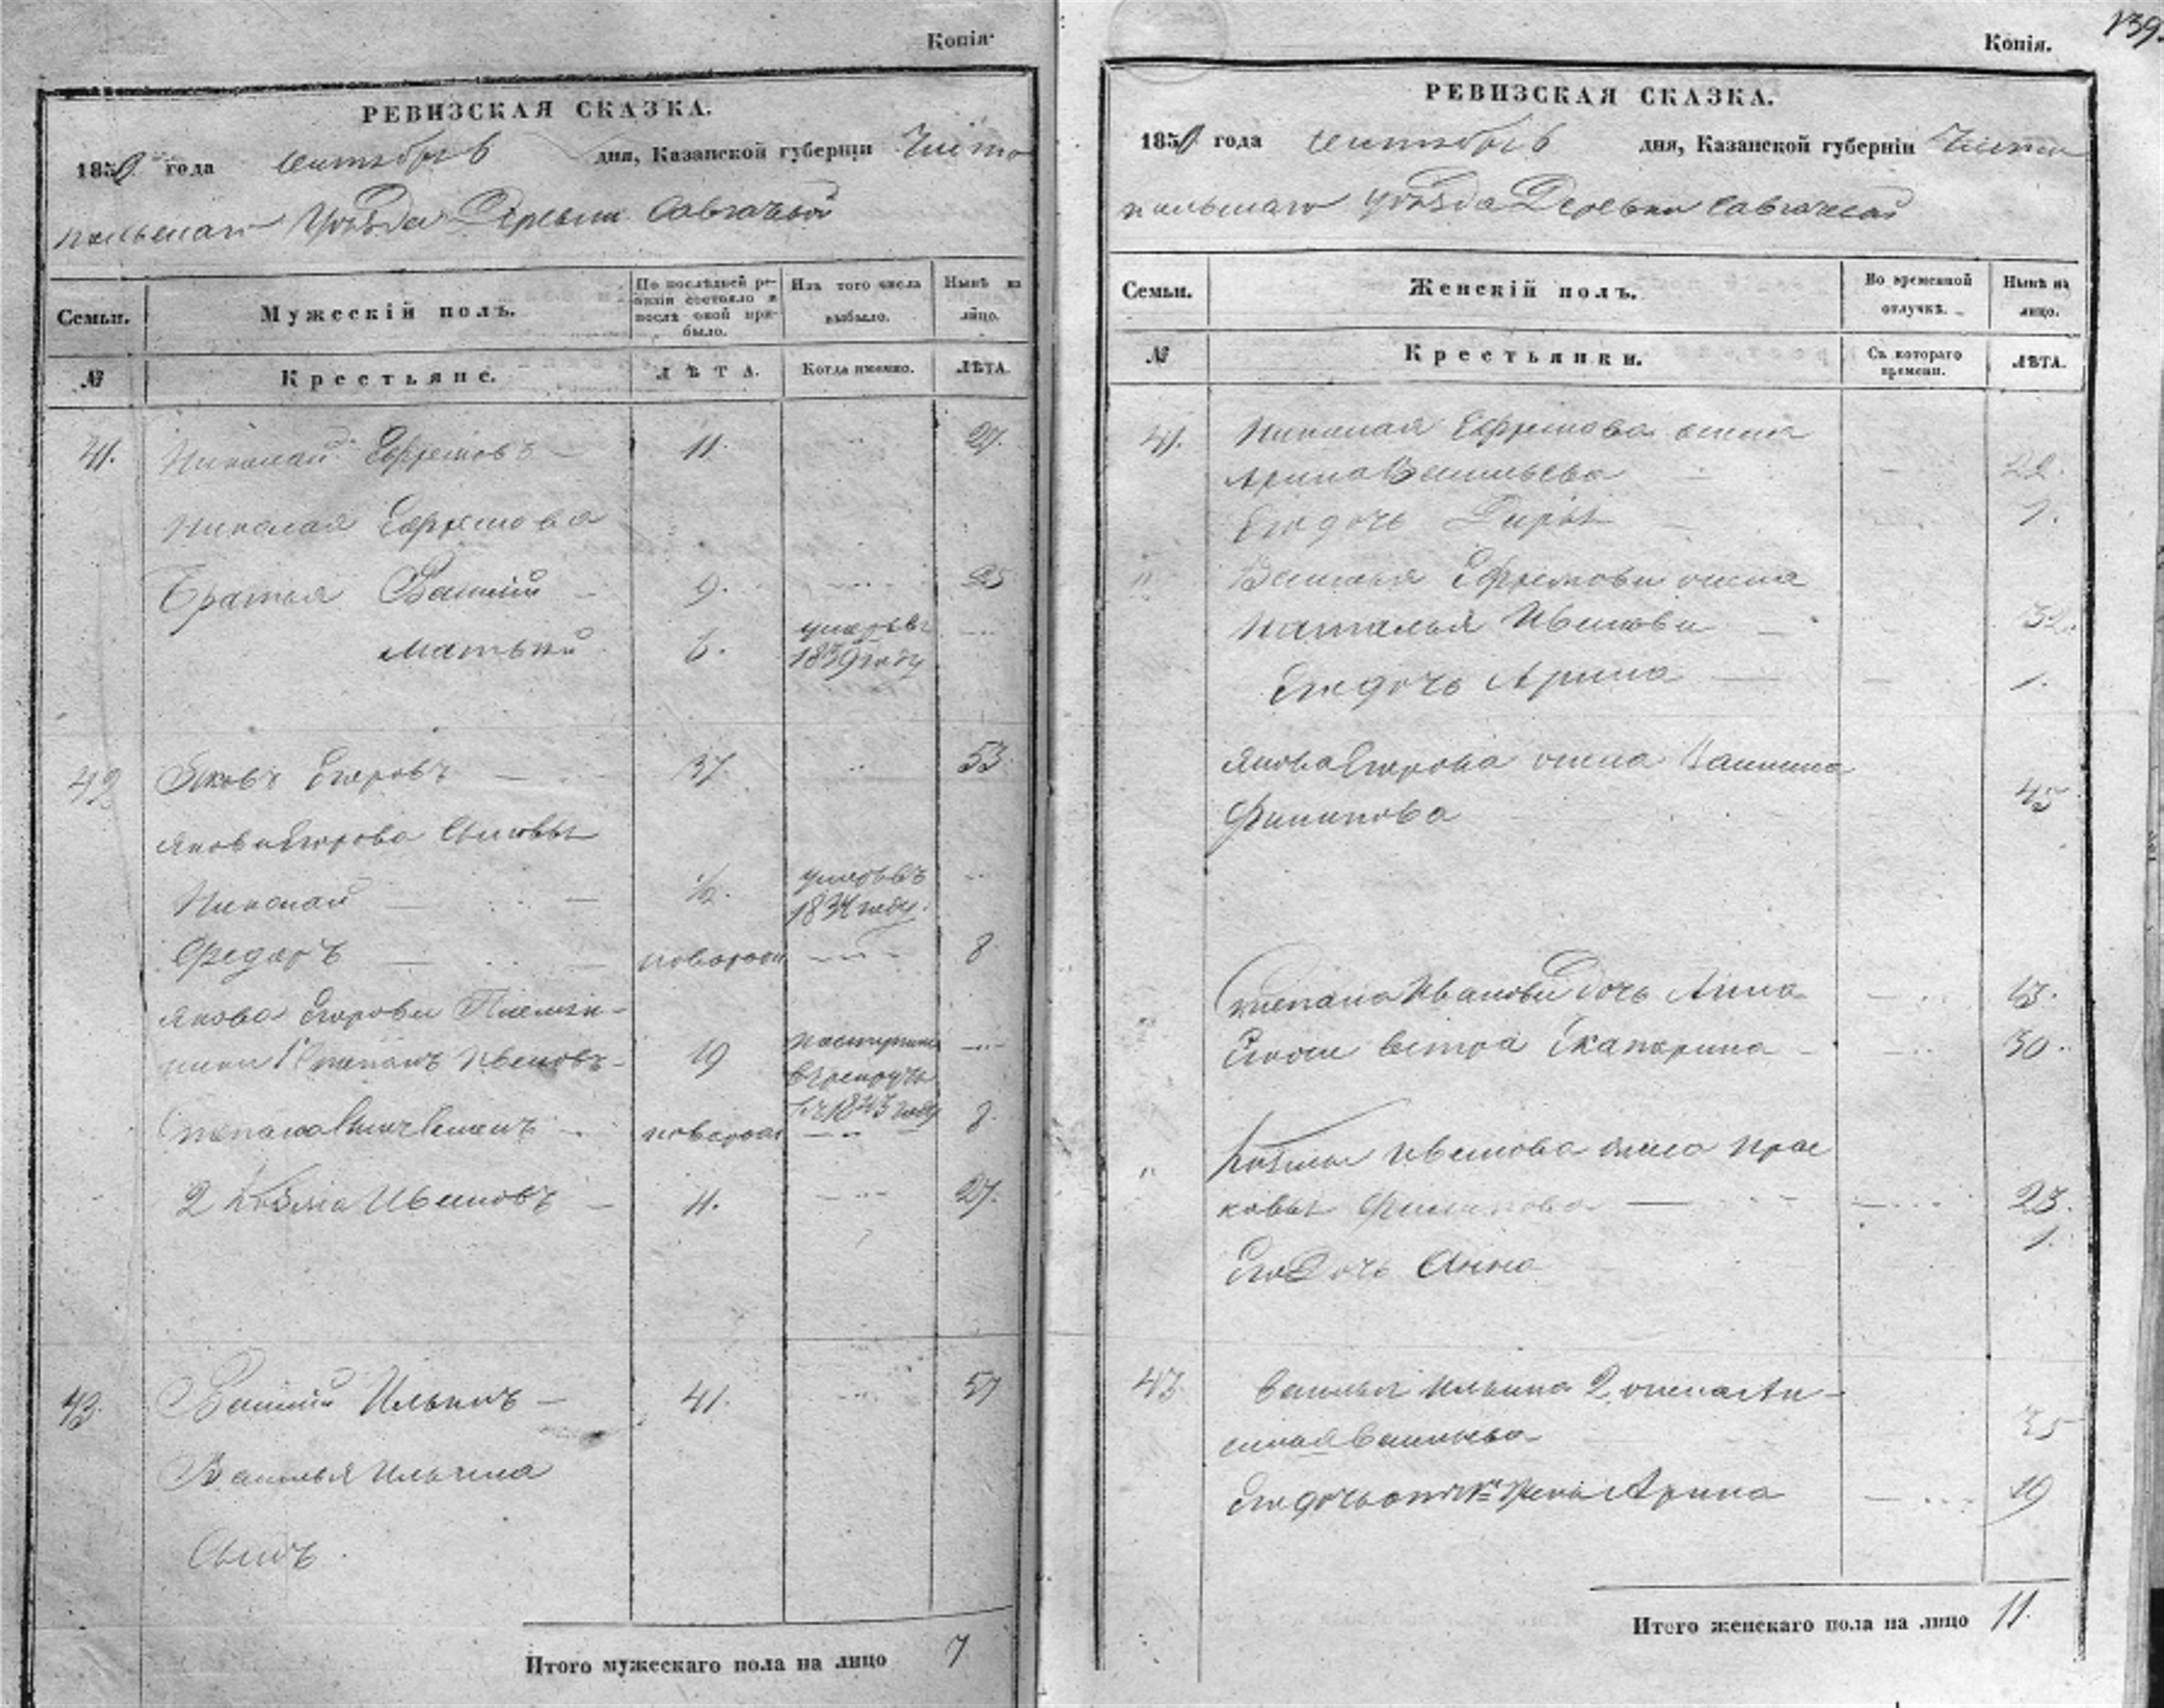 Копія.
РЕВИЗСКАЯ СКАЗКА.
1850 года сентября дня, Казанской губерніи Чисто
польскаго Уѣзда Деревни Савгачевой
Семьи. Мужескій полъ. По послѣдней ре- Изъ того числа Нынѣ на
визіи состояло и
послѣ оной при- выбыло. лицо.
было.
№ Крестьяне. ЛѢТА. Когда именно. ЛѢТА.
41. Николай Ефремовъ 11. 27.
Николая Ефремова
Братья Василий 9. 25
Матвий 6. умеръ въ
1839 году
42 Яковъ Егоровъ 37. 53.
Якова Егорова Сыновья
Николай ½. умеръ въ
1834 году.
Федоръ новорож 8
Якова Егорова Племян-
ники 1й Степанъ Ивановъ 19 поступилъ
в рекруты
въ 1843 году
Степана Сынъ Семенъ новорож 8.
2 Козма Ивановъ 11. 27.
43. Василий Ильинъ 41. 57
Василья Ильина
Сынъ.
Итого мужескаго пола на лицо 7
139.
Копія.
РЕВИЗСКАЯ СКАЗКА.
1850 года сентября дня, Казанской губерніи Чисто
польскаго Уѣзда Деревни Савгачевой
Семьи. Женскій полъ. Во временной Нынѣ на
отлучкѣ. лицо.
№ Крестьянки. Съ котораго ЛѢТА.
времени.
41. Николая Ефремова жена
Арина Васильева 22.
Его дочь Дарья 1.
" Василья Ефремова жена
Наталья Иванова 32.
Его дочь Арина 1.
Якова Егорова жена
Филипова 45
Степана Иванова дочь Анна 13.
Его же сестра Екатерина 30.
" Козмы Иванова жена Прас
ковья Филипова 23.
Его Дочь Анна 1.
43 Василья Ильина 2 жена
Васильева 35
Его дочь от 1й жены Арина 19
Итого женскаго пола на лицо 11.